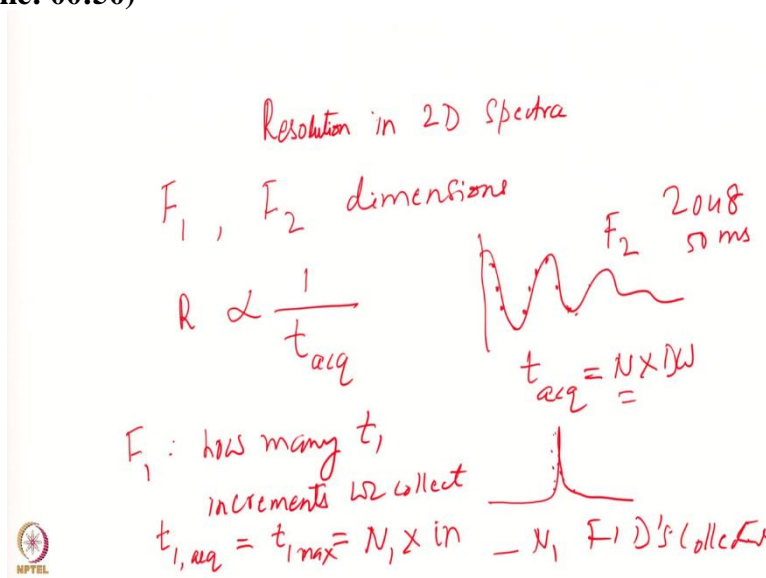 ne: 00:50)
Resolution in 2D Spectra
F1, F2 dimensions
F2 2048
50 ms
R ∝ 1 / t acq
t acq = N X DW
F1 : how many t1
increments we collect
t1,acq = t1max = N1 X in – N1 FID's Collected
NPTEL